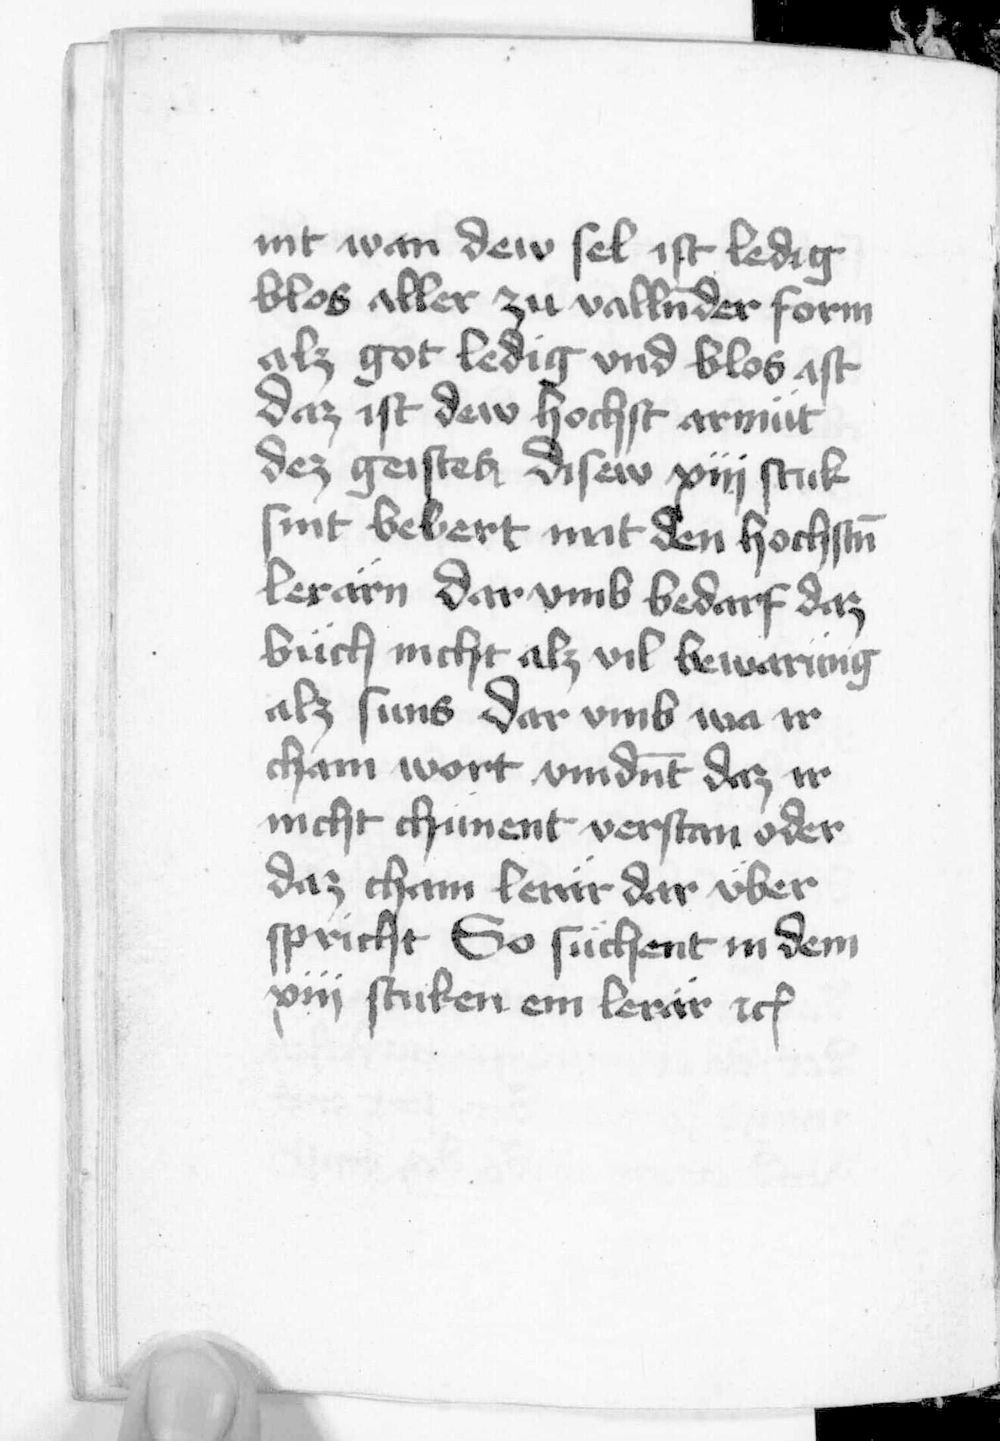 nit wan dew sel ist ledig
blos aller zu vallnder form
alz got ledig vnd blos ist
Daz ist dew hochst armüt
dez geistes Disew xiij stuk
sint bebert mit den hochstn̄
lerärn Dar vmb bedarf daz
büch nicht alz vil bewarüng
alz suns Dar vmb wa ir
chain wort vindn̄t daz ir
nicht chünent verstan oder
daz chain lerär dar über
spricht So süchent in dem
xiij stuken ein lerär ⁊cꝭ